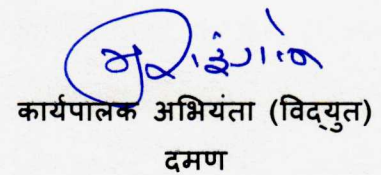 कार्यपालक अभियंता (विद्युत)
दमण